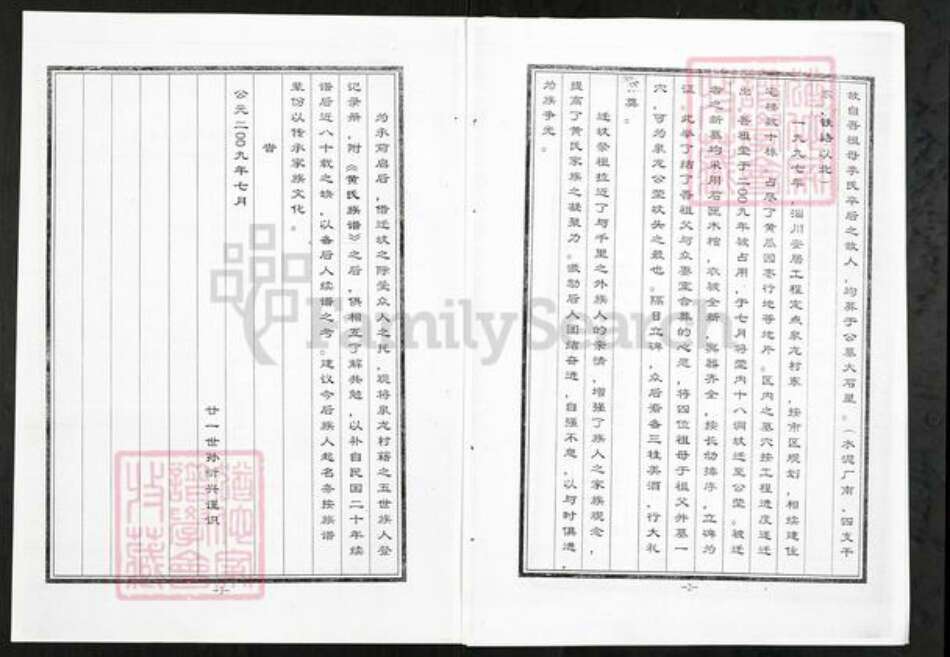 故自吾祖母李氏卒后之故人，均葬于公墓大石星。（水泥厂南，四支干
铁路以北
一九九七年，淄川安居工程定点泉龙村东，按市区规划，相续建住
宅楼数十栋，占尽了黄瓜园枣行地等地片。区内之墓穴按工程进度逐迁
出，吾祖茔于二00九年被占用，于七月将茔内十八洞坟迁至公茔。被迁
者之新墓均采用石匣木棺，衣被全新，冥器齐全，按长幼排序，立碑为
证。此举了结了吾祖父与众妻室合葬的心愿，将四位祖母于祖父并墓一
穴，可为泉龙公茔坟头之最也。隔日立碑，众后裔备三牲美酒，行大礼
奠。
迁坟祭祖拉近了与千里之外族人的亲情，增强了族人之家族观念，
提高了黄氏家族之凝聚力。激励后人团结奋进，自强不息，以与时俱进
为族争光。
-2-
为承前启后，借迁坟之际受众人之托，现将泉龙村籍之五世族人登
记录册，附《黄氏族谱》之后，俱相互了解共勉，以补自民国二十年续
谱后近八十载之缺，以备后人续谱之考。建议今后族人起名务按族谱
辈份以传承家族文化。
告
公元二00九年七月
廿一世孙 兴谨识
-3-
FamilySearch